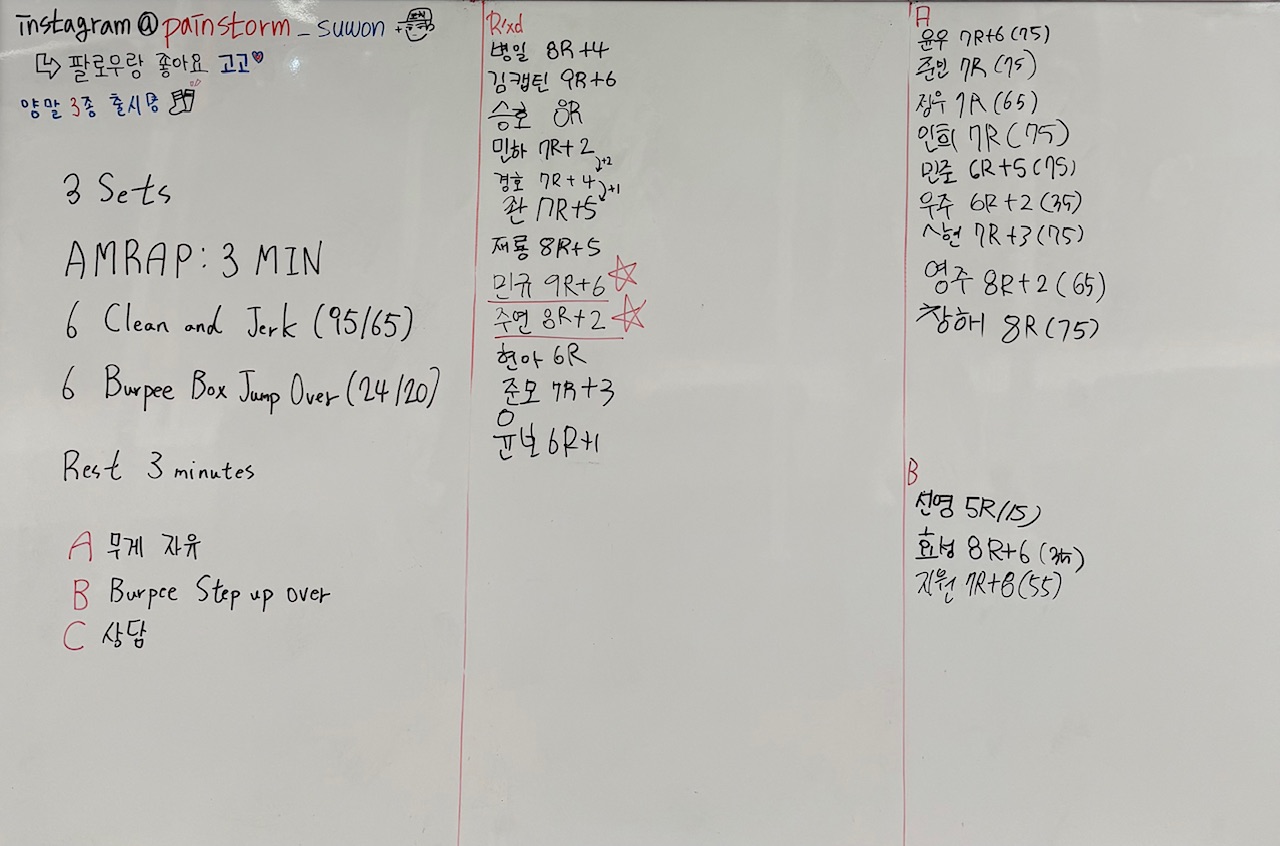 instagram@painstorm_suwon
팔로우랑 좋아요 고고
양말 3종 출시중
3 Sets
AMRAP: 3 MIN
6 Clean and Jerk (95/65)
6 Burpee Box Jump Over (24/20)
Rest 3 minutes
A 무게 자유
B Burpee Step up over
C 상담
R'xd
병일 8R+4
김캡틴 9R+6
승호 8R
민하 7R+2
+2
경호 7R+4
+1
관 7R+5
재룡 8R+5
민규 9R+6
주연 8R+2
현아 6R
준모 7R+3
6R+1
A
윤우 7R+6(75)
주빈 7R(75)
정우 7R(65)
인희 7R(75)
민준 6R+5(75)
우주 6R+2(35)
상현 7R+3(75)
영주 8R+2(65)
창해 8R(75)
B
선영 5R(15)
효성 8R+6(35)
지원 7R+8(55)